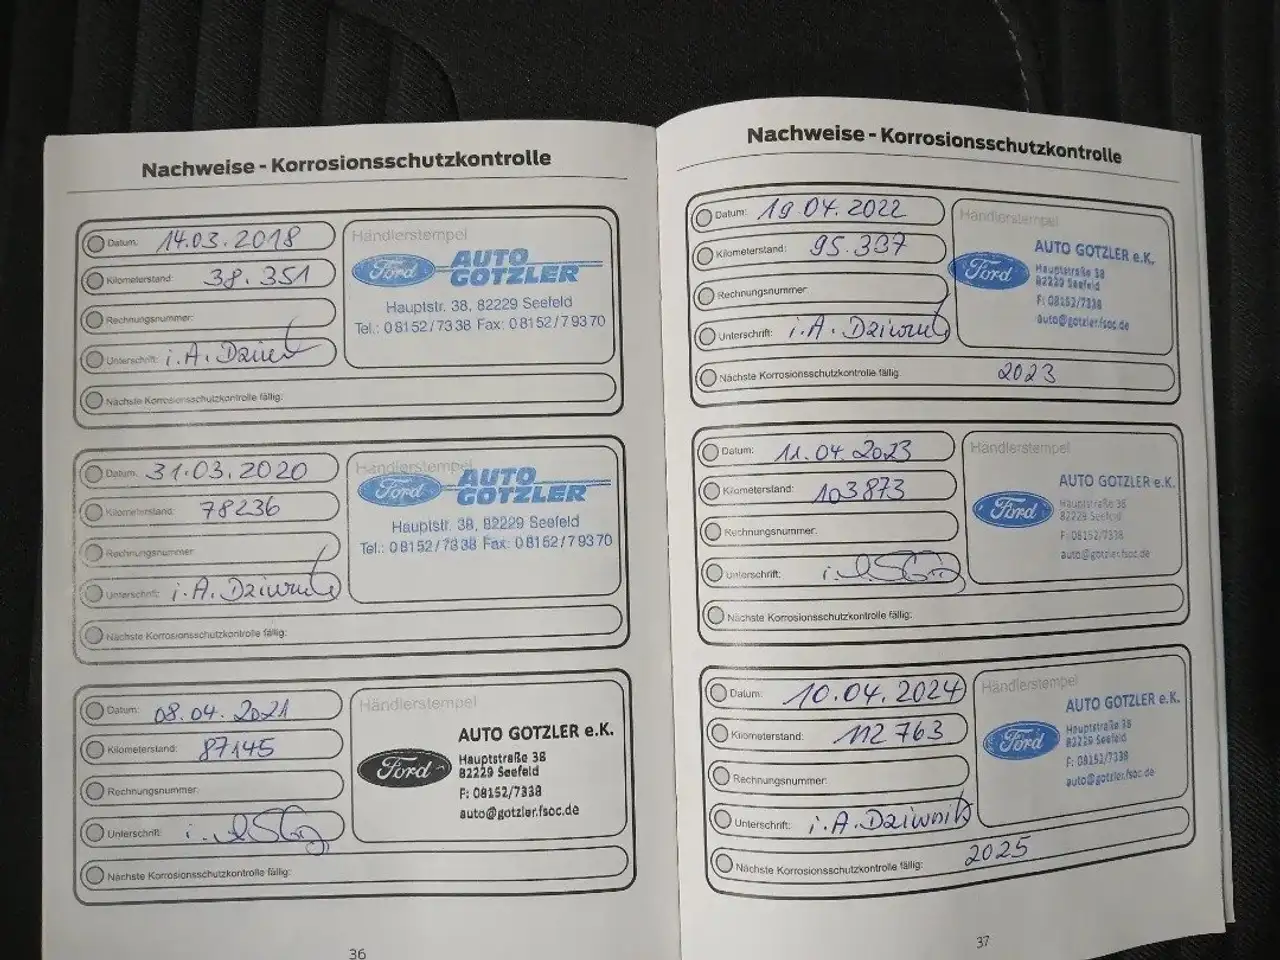 Nachweise - Korrosionsschutzkontrolle
Datum: 14.03.2018
Kilometerstand: 38.351
Rechnungsnummer:
Unterschrift: i.A.
Nächste Korrosionsschutzkontrolle fällig:
Händlerstempel
Ford AUTO GOTZLER
Hauptstr. 38, 82229 Seefeld
Tel.: 08152/7338 Fax: 08152/79370
Datum: 31.03.2020
Kilometerstand: 78236
Rechnungsnummer:
Unterschrift: i.A.
Nächste Korrosionsschutzkontrolle fällig:
Händlerstempel
Ford AUTO GOTZLER
Hauptstr. 38, 82229 Seefeld
Tel.: 08152/7338 Fax: 08152/79370
Datum: 08.04.2021
Kilometerstand: 87145
Rechnungsnummer:
Unterschrift:
Nächste Korrosionsschutzkontrolle fällig:
Händlerstempel
Ford
AUTO GOTZLER e.K.
Hauptstraße 38
82229 Seefeld
F: 08152/7338
auto@gotzler.fsoc.de
36
Nachweise - Korrosionsschutzkontrolle
Datum: 19.04.2022
Kilometerstand: 95.307
Rechnungsnummer:
Unterschrift: i.A.
Nächste Korrosionsschutzkontrolle fällig: 2023
Händlerstempel
Ford
AUTO GOTZLER e.K.
Hauptstraße 38
82229 Seefeld
F: 08152/7338
auto@gotzler.fsoc.de
Datum: 11.04.2023
Kilometerstand: 103873
Rechnungsnummer:
Unterschrift:
Nächste Korrosionsschutzkontrolle fällig:
Händlerstempel
Ford
AUTO GOTZLER e.K.
Hauptstraße 38
82229 Seefeld
F: 08152/7338
auto@gotzler.fsoc.de
Datum: 10.04.2024
Kilometerstand: 112763
Rechnungsnummer:
Unterschrift: i.A. Dziwnik
Nächste Korrosionsschutzkontrolle fällig: 2025
Händlerstempel
Ford
AUTO GOTZLER e.K.
Hauptstraße 38
82229 Seefeld
F: 08152/7338
auto@gotzler.fsoc.de
37